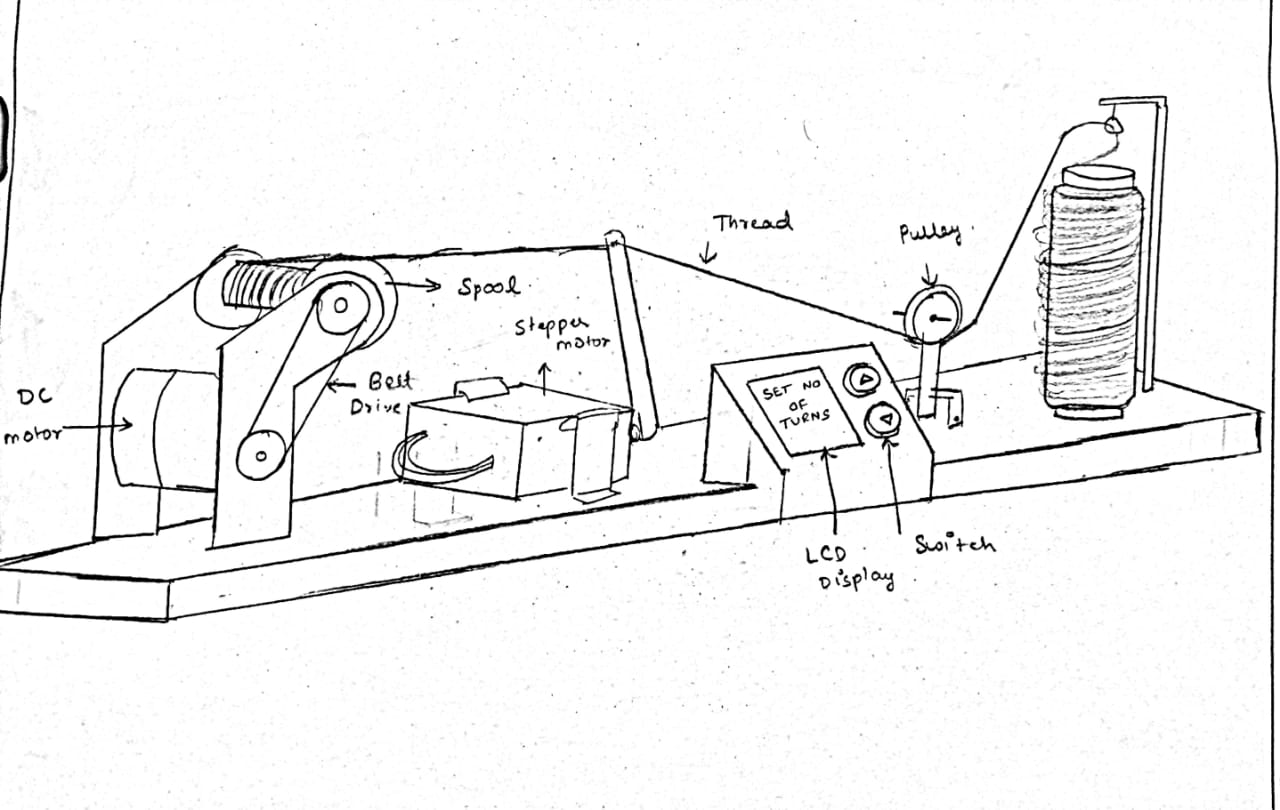 Thread
Pulley
Spool
Stepper
motor
DC
motor
Belt
Drive
SET NO
OF
TURNS
LCD
Display
Switch